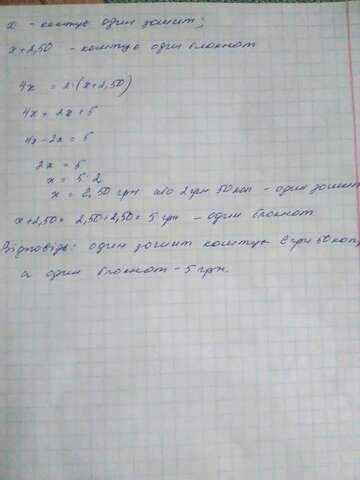 x - коштує один зошит;
x+2,50 - коштує один блокнот
4x = 2·(x+2,50)
4x = 2x+5
4x-2x = 5
2x = 5
x = 5:2
x = 2,50 грн або 2 грн 50 коп - один зошит
x+2,50 = 2,50+2,50 = 5 грн - один блокнот
Відповідь: один зошит коштує 2 грн 50 коп,
а один блокнот - 5 грн.